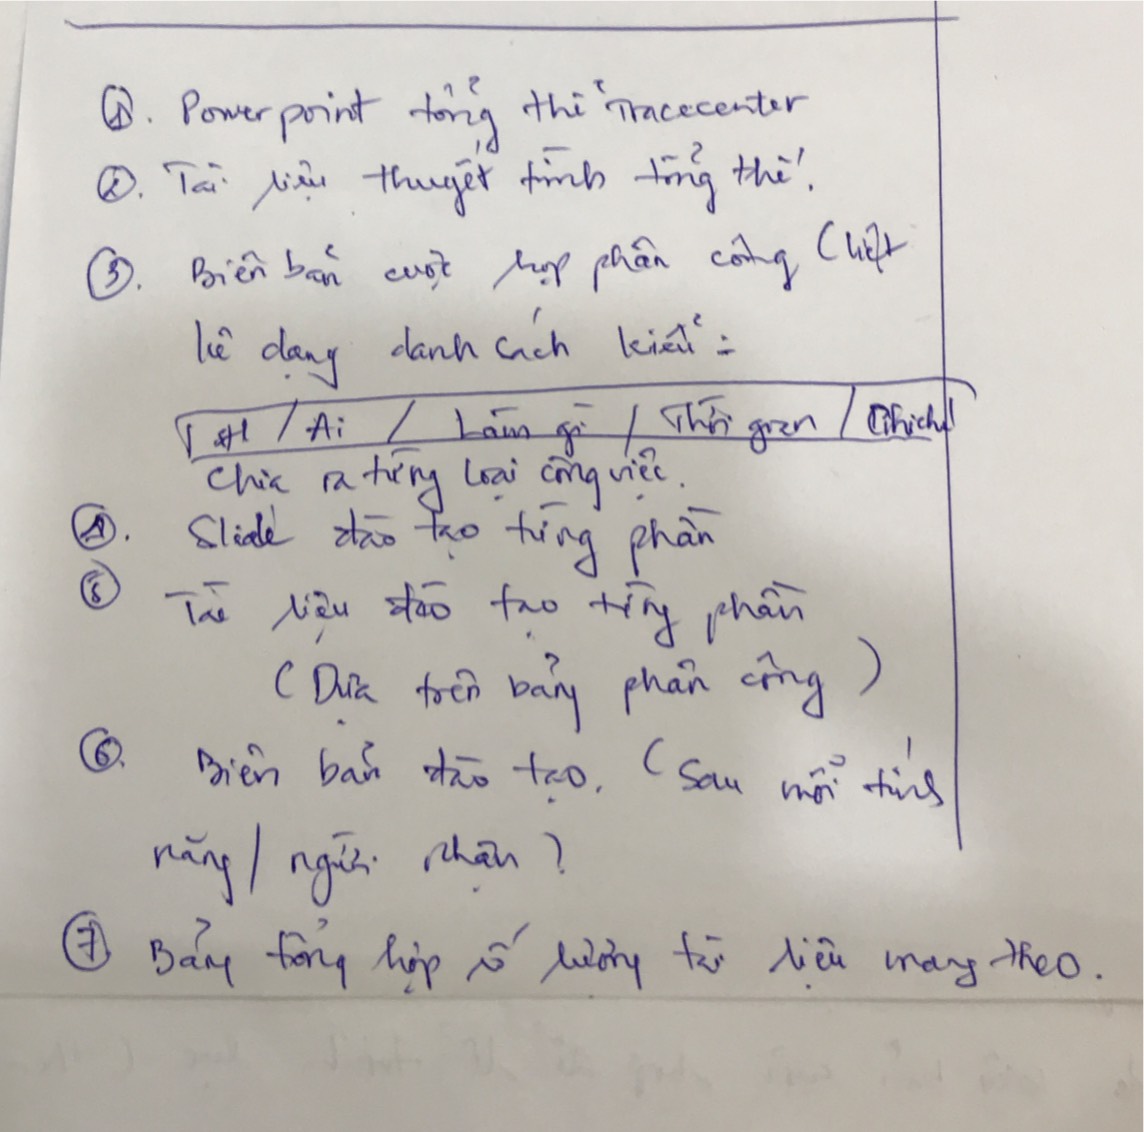 ①. Powerpoint tổng thể Tracecenter
②. Tài liệu thuyết trình tổng thể.
③. Biên bản cuộc họp phân công (liệt
kê dạng danh sách kiểu:
STT / Ai / Làm gì / Thời gian / Ghi chú
Chia ra từng loại công việc.
④. Slide đào tạo từng phần
⑤ Tài liệu đào tạo từng phần
(Dựa trên bảng phân công)
⑥. Biên bản đào tạo. (Sau mỗi tính
năng / người nhận)
⑦ Bảng tổng hợp số lượng tài liệu mang theo.